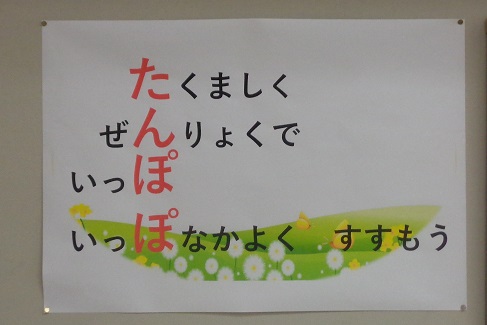 たくましく
ぜんりょくで
いっぽ
いっぽなかよく　すすもう